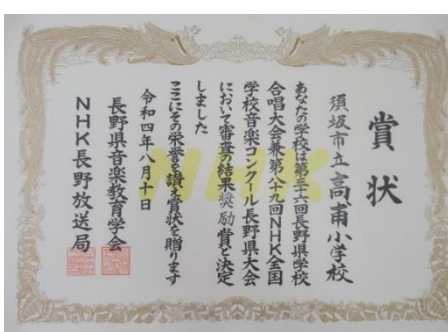 賞状
須坂市立高甫小学校
あなたの学校は第三十六回長野県学校
合唱大会兼第八十九回NHK全国
学校音楽コンクール長野県大会
において審査の結果奨励賞と決定
しました
ここにその栄誉を讃え賞状を贈ります
令和四年八月十日
長野県音楽教育学会
NHK長野放送局
NHK